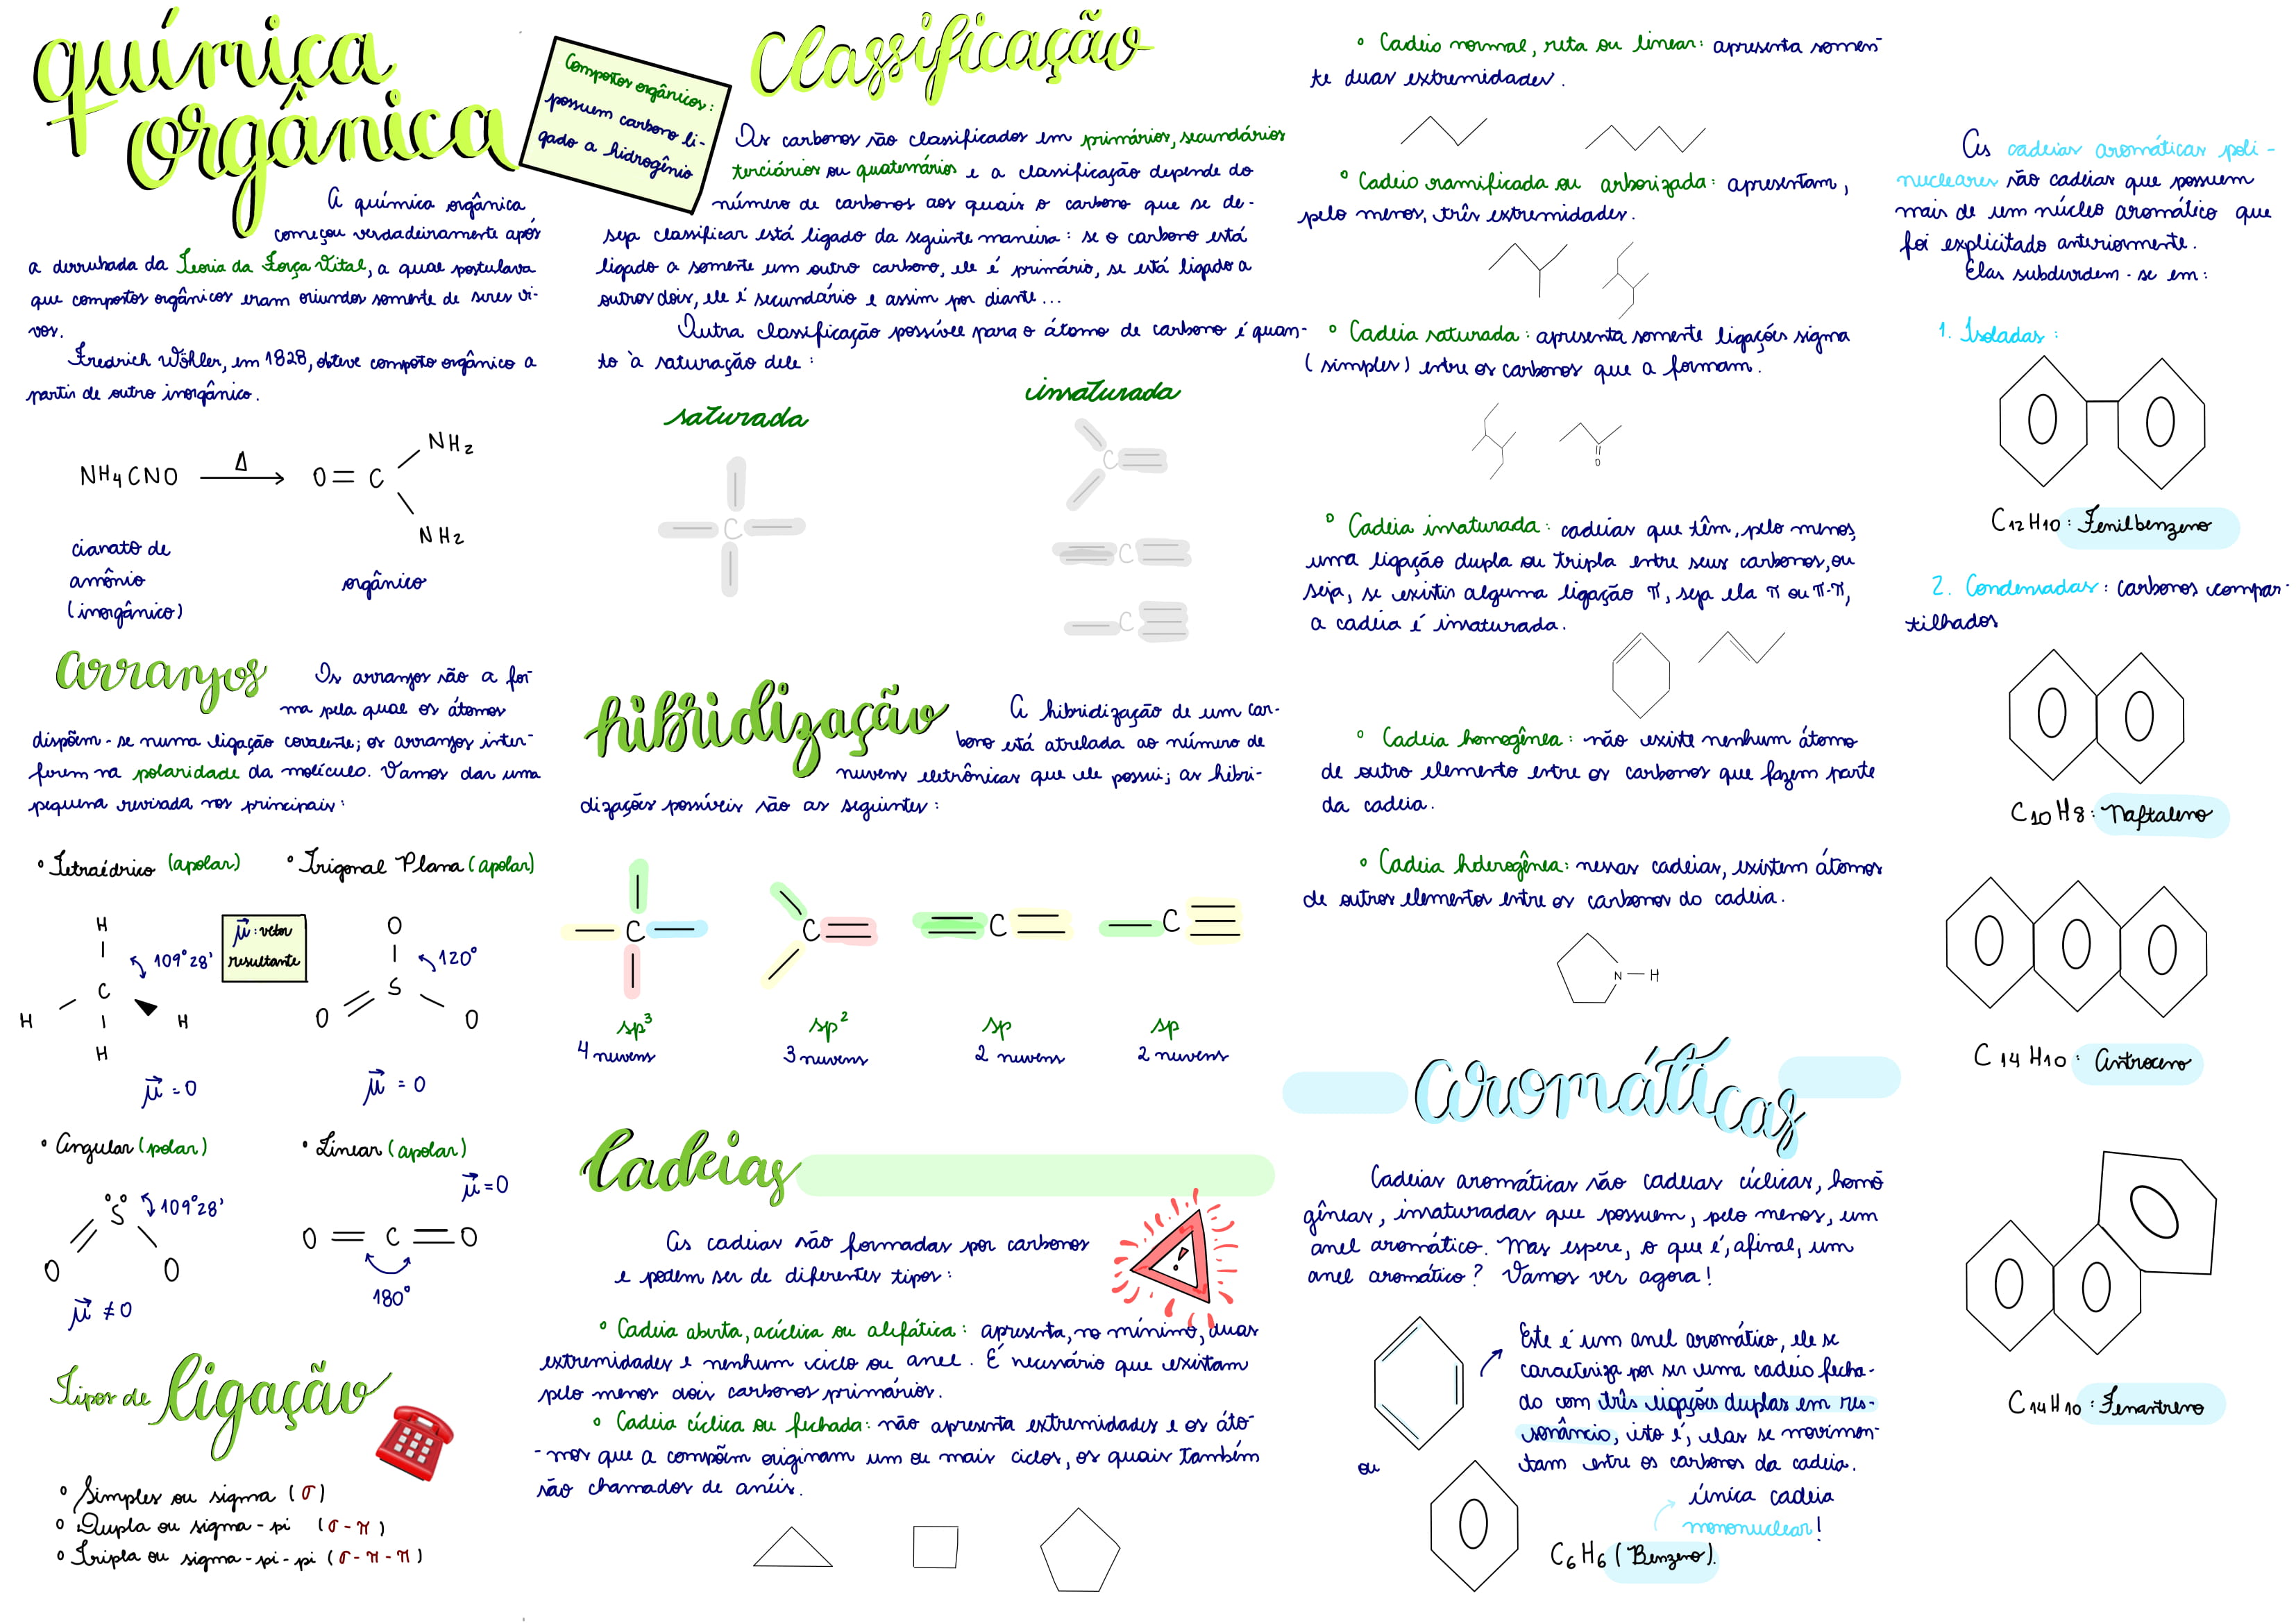 química
orgânica
A química orgânica
começou verdadeiramente após
a derrubada da Teoria da Força Vital, a qual postulava
que compostos orgânicos eram oriundos somente de seres vi-
vos.
Fredrich Wöhler, em 1828, obteve composto orgânico a
partir de outro inorgânico.
NH4CNO Δ O = C NH2
NH2
cianato de
amônio
(inorgânico)
orgânico
Compostos orgânicos:
possuem carbono li-
gado a hidrogênio
arranjos
Os arranjos são a for-
ma pela qual os átomos
dispõem-se numa ligação covalente; os arranjos inter-
ferem na polaridade da molécula. Vamos dar uma
pequena revisada nos principais:
° Tetraédrico (apolar)
H
C
H
H
H
109°28'
μ = 0
μ: vetor
resultante
° Trigonal Plana (apolar)
O
S
O
O
120°
μ = 0
° Angular (polar)
S
O
O
109°28'
μ ≠ 0
° Linear (apolar)
μ = 0
O = C = O
180°
Tipos de ligação
° Simples ou sigma (σ)
° Dupla ou sigma-pi (σ-π)
° Tripla ou sigma-pi-pi (σ-π-π)
Classificação
Os carbonos são classificados em primários, secundários
terciários ou quaternários e a classificação depende do
número de carbonos aos quais o carbono que se de-
seja classificar está ligado da seguinte maneira: se o carbono está
ligado a somente um outro carbono, ele é primário, se está ligado a
outros dois, ele é secundário e assim por diante...
Outra classificação possível para o átomo de carbono é quan-
to à saturação dele:
saturada
C
insaturada
C
C
C
hibridização
A hibridização de um car-
bono está atrelada ao número de
nuvens eletrônicas que ele possui; as hibri-
dizações possíveis são as seguintes:
C C C C
sp³ sp² sp sp
4 nuvens 3 nuvens 2 nuvens 2 nuvens
Cadeias
As cadeias são formadas por carbonos
e podem ser de diferentes tipos:
!
° Cadeia aberta, acíclica ou alifática: apresenta, no mínimo, duas
extremidades e nenhum ciclo ou anel. É necessário que existam
pelo menos dois carbonos primários.
° Cadeia cíclica ou fechada: não apresenta extremidades e os áto-
-mos que a compõem originam um ou mais ciclos, os quais também
são chamados de anéis.
° Cadeia normal, reta ou linear: apresenta somen-
te duas extremidades.
° Cadeia ramificada ou arborizada: apresentam,
pelo menos, três extremidades.
° Cadeia saturada: apresenta somente ligações sigma
(simples) entre os carbonos que a formam.
O
° Cadeia insaturada: cadeias que têm, pelo menos,
uma ligação dupla ou tripla entre seus carbonos, ou
seja, se existir alguma ligação π, seja ela π ou π-π,
a cadeia é insaturada.
° Cadeia homogênea: não existe nenhum átomo
de outro elemento entre os carbonos que fazem parte
da cadeia.
° Cadeia heterogênea: nessas cadeias, existem átomos
de outros elementos entre os carbonos da cadeia.
N – H
aromáticas
Cadeias aromáticas são cadeias cíclicas, homo
gêneas, insaturadas que possuem, pelo menos, um
anel aromático. Mas espere, o que é, afinal, um
anel aromático? Vamos ver agora!
Este é um anel aromático, ele se
caracteriza por ser uma cadeia fecha-
da com três ligações duplas em res-
sonância, isto é, elas se movimen-
tam entre os carbonos da cadeia.
ou
única cadeia
mononuclear!
C6H6 (Benzeno).
As cadeias aromáticas poli-
nucleares são cadeias que possuem
mais de um núcleo aromático que
foi explicitado anteriormente.
Elas subdividem-se em:
1. Isoladas:
C12H10: Fenilbenzeno
2. Condensadas: carbonos compar-
tilhados
C10H8: Naftaleno
C14H10: Antraceno
C14H10: Fenantreno